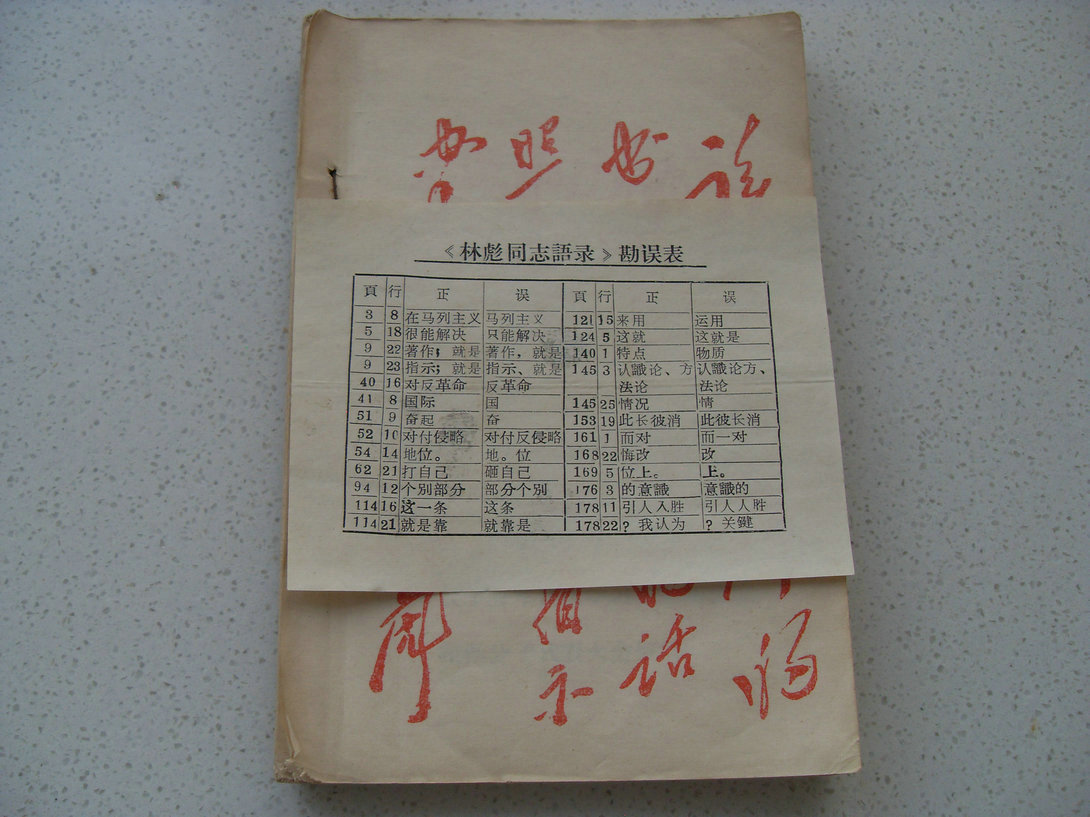 照 书 读
《林彪同志語录》勘误表
頁 行 正 误 頁 行 正 误
3 8 在马列主义 马列主义 121 15 来用 运用
5 18 很能解决 只能解决 124 5 这就 这就是
9 22 著作；就是 著作，就是 140 1 特点 物质
9 23 指示；就是 指示、就是 145 3 认識论、方 认識论方、
40 16 对反革命 反革命 法论 法论
41 8 国际 国 145 25 情况 情
51 9 奋起 奋 153 19 此长彼消 此彼长消
52 10 对付侵略 对付反侵略 161 1 而对 而一对
54 14 地位。 地。位 168 22 悔改 改
62 21 打自己 砸自己 169 5 位上。 上。
94 12 个别部分 部分个别 176 3 的意識 意識的
114 16 这一条 这条 178 11 引人入胜 引人人胜
114 21 就是靠 就靠是 178 22 ？我认为 ？关鍵
指 话
示